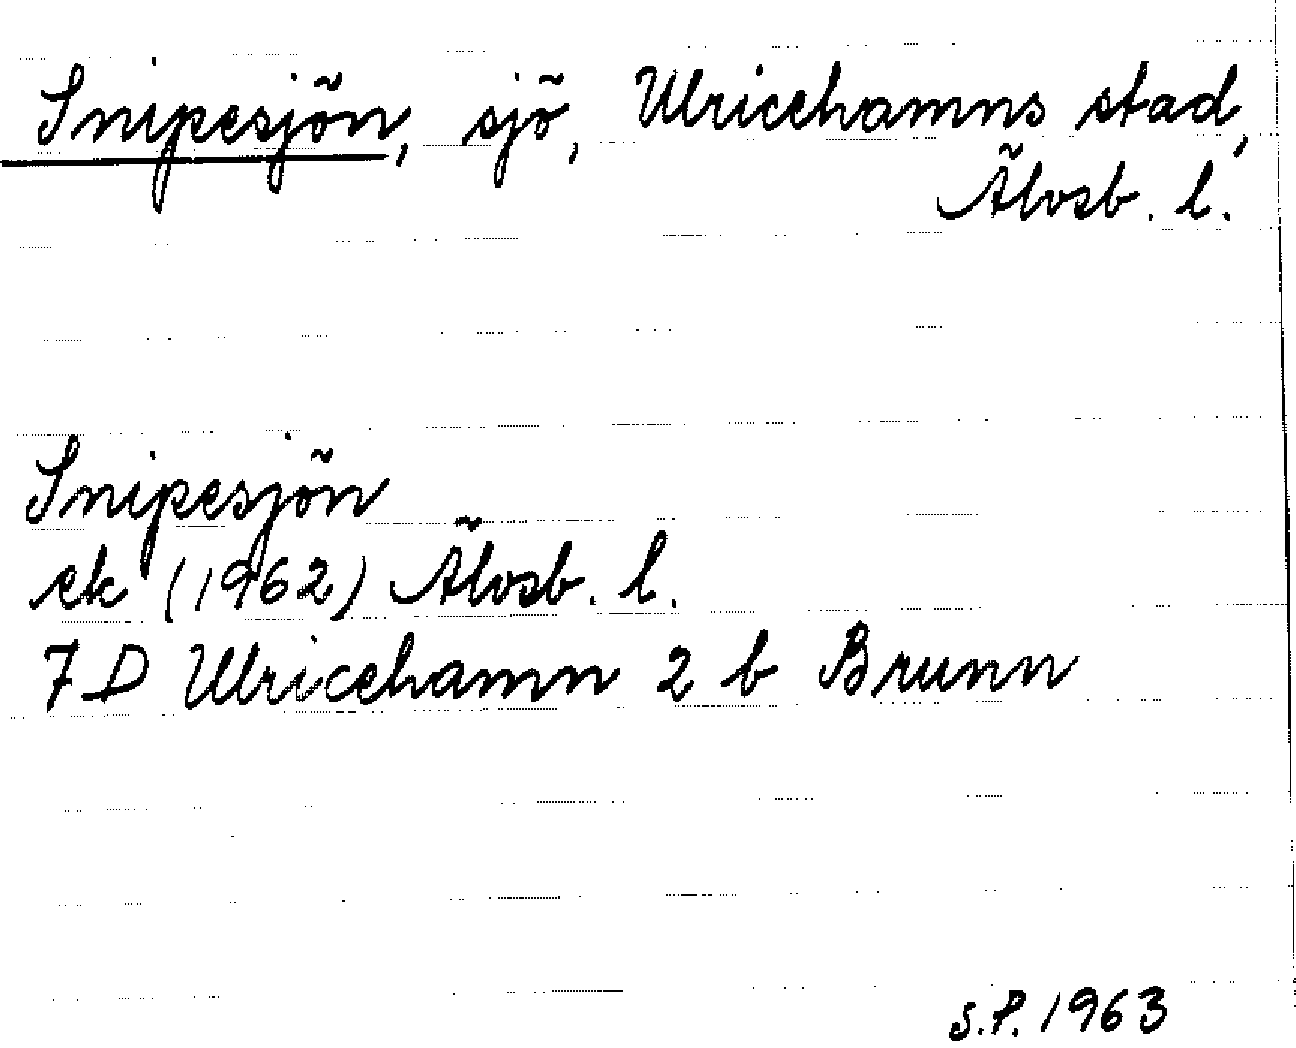 Snipesjön, sjö, Ulricehamns stad,
Älvsb. l.
Snipesjön
ek (1962) Älvsb. l.
7 D Ulricehamn 2 b Brunn
S.P. 1963